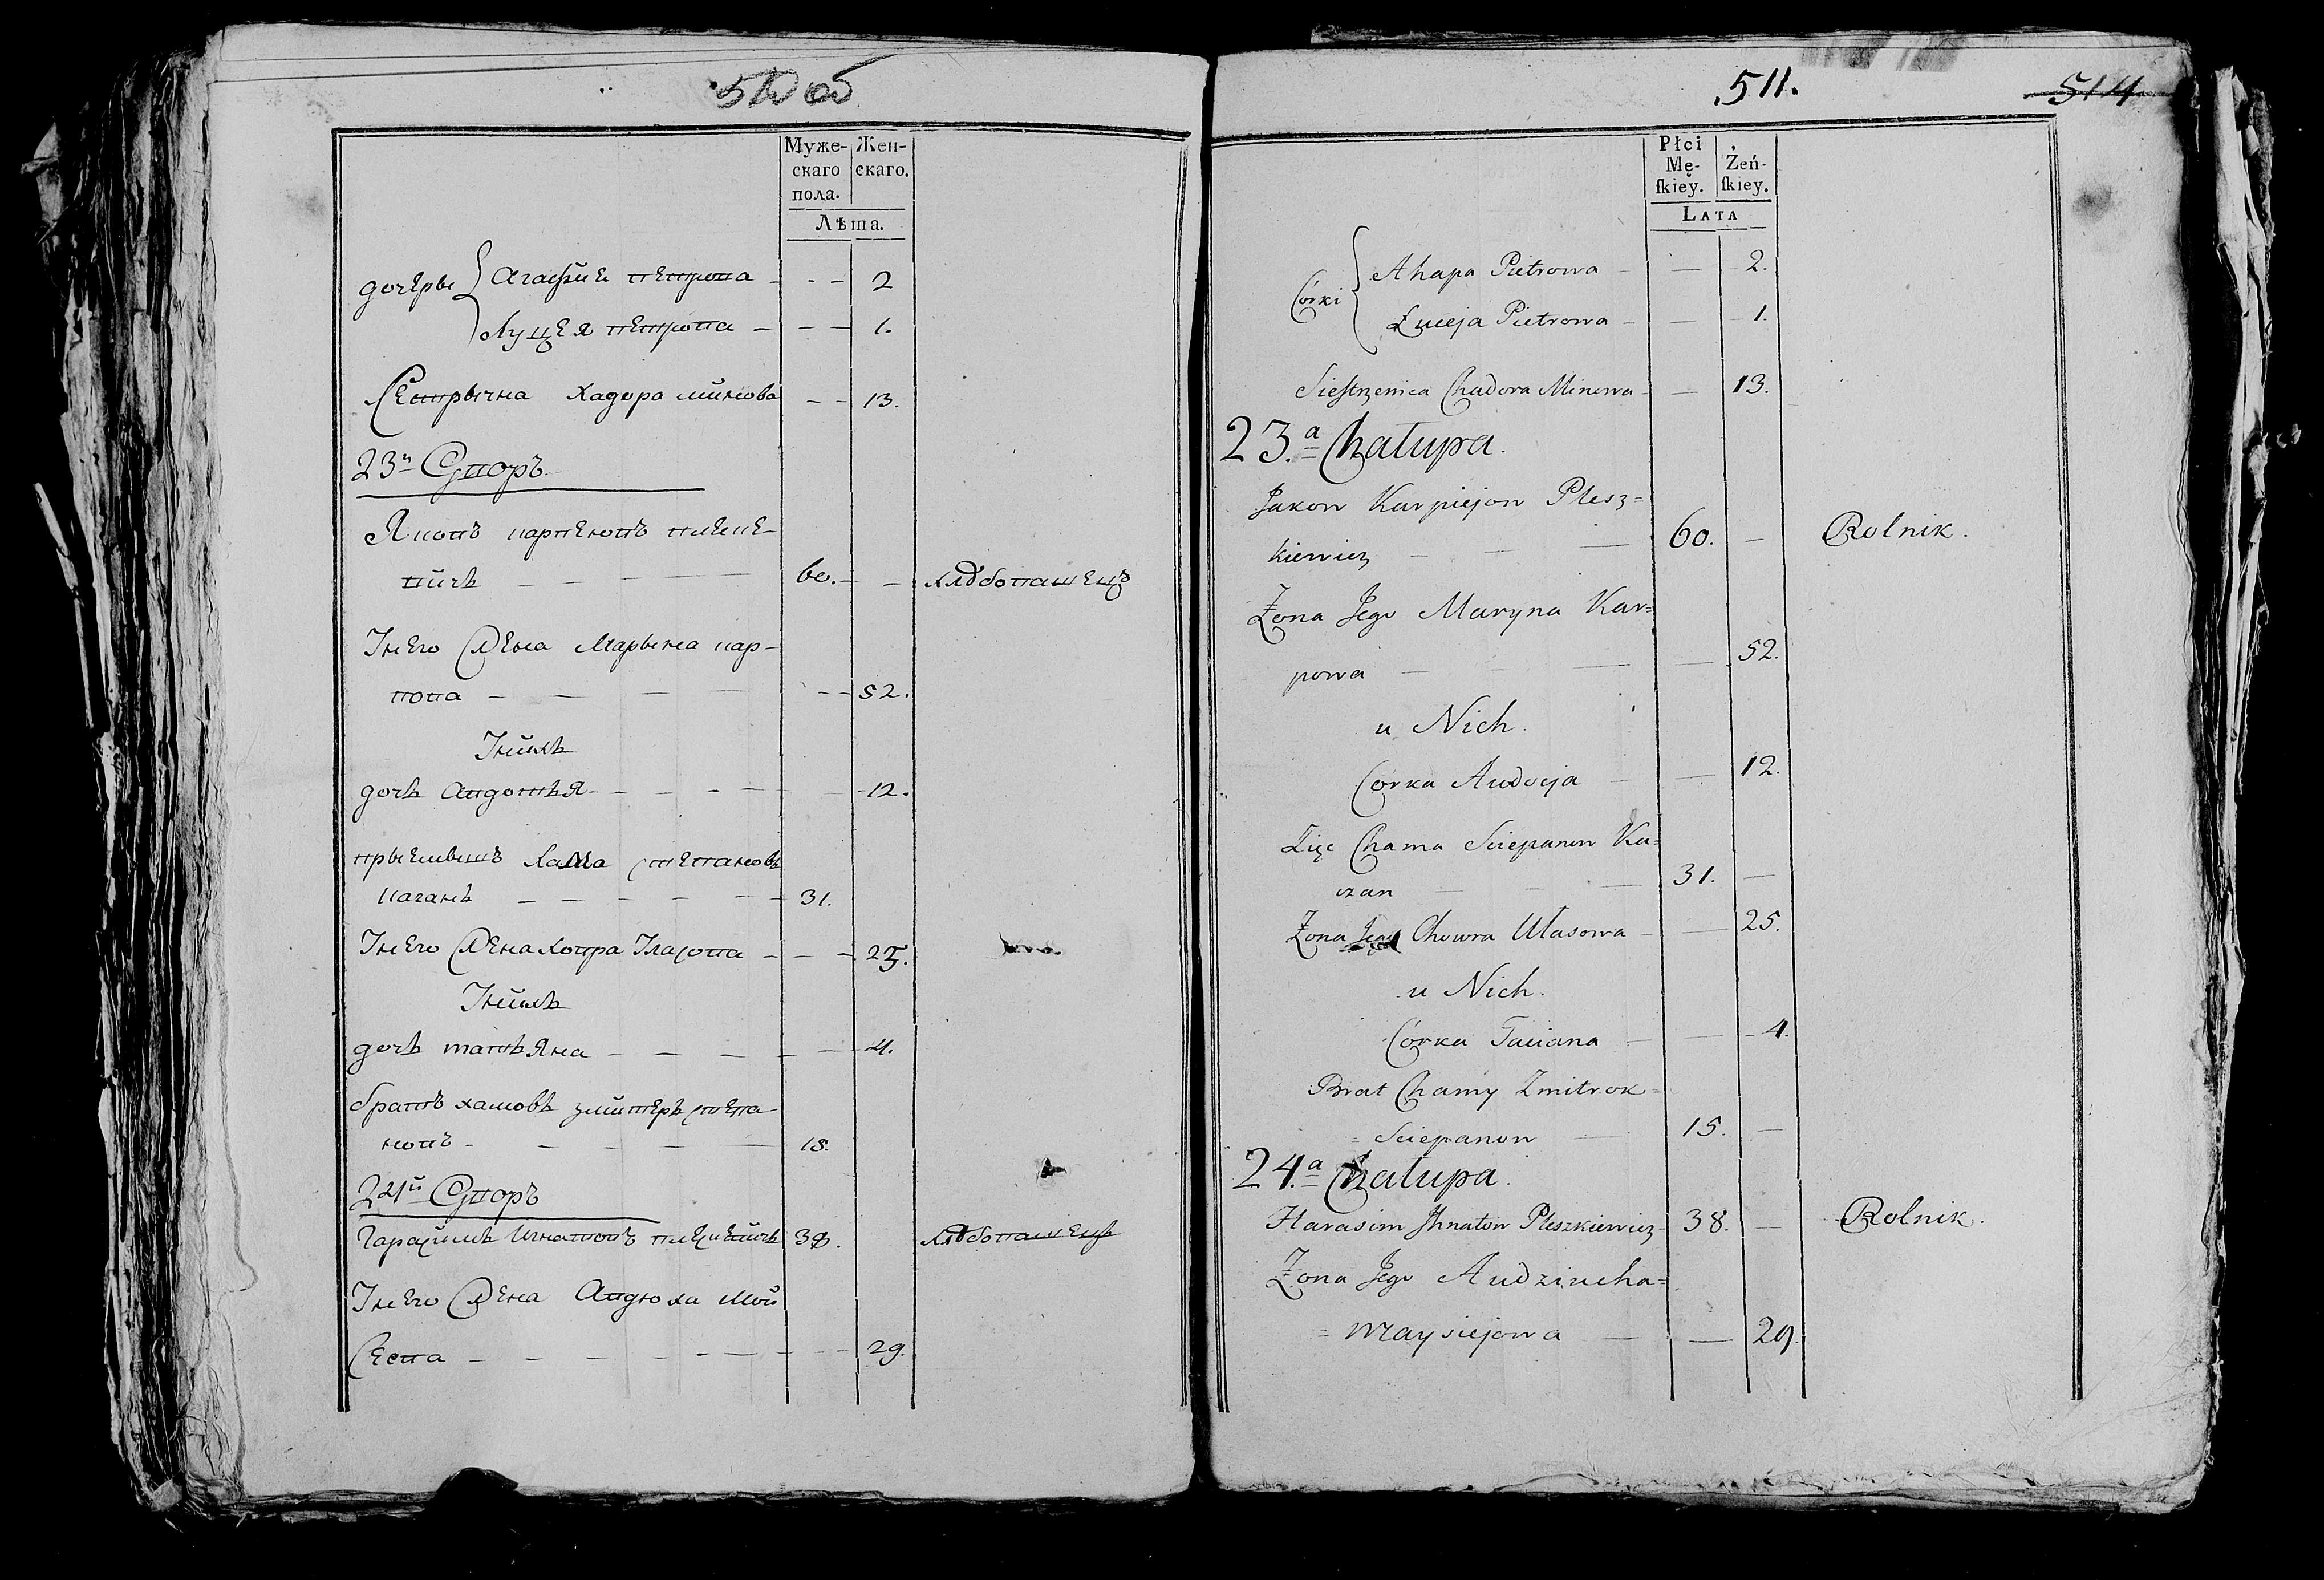 510 об
Муже-
скаго
пола.
Жен-
скаго.
Лѣта.
дочеры { Агафие петрова - - - 2
Луцея петрова - - - 1.
Сестрычна хадора минова - - 13.
23й Дворъ
Яковъ карпеювъ плеше-
вичь - - - - 60. - - хлѣбопашецъ
Унего Жена Марына кар-
пова - - - - - - 52.
Унихъ
дочь Авдотья - - - - - 12.
прыемышъ хама степановъ
качанъ - - - - - - 31.
Унего Жена ховра Уласова - - - 25.
Унихъ
дочь татьяна - - - - - 4.
братъ хамовъ змитеръ степа-
новъ - - - - - 15.
24й Дворъ
Гарасимъ Игнатовъ 38. хлѣбопашецъ
Унего Жена Авдюха Мой
Сеева - - - - - - - - 29.
511.
514
Płci
Mę-
ſkiey.
Żeń-
ſkiey.
LATA
Córki { Ahapa Pietrowa - — - 2.
Łuceja Pietrowa - — - 1.
Sieſtrzenica Chadora Minowa - — 13.
23.a Chałupa.
Jakow Karpiejow Plesz=
kiewicz — — — 60. — Rolnik.
Żona Jego Maryna Kar=
powa — — — — 52.
u Nich.
Córka Audocja — — 12.
Zięc Chama Sciepanow Ka=
czan — - — 31. —
Żona Jego Chowra Ułasowa - — 25.
u Nich.
Córka Taciana — — - 4.
Brat Chamy Zmitrok=
= Sciepanow — 15. —
24.a Chałupa.
Harasim Jhnatow Pleszkiewicz 38. — Rolnik.
Żona Jego Audziucha=
= Maysiejowa — — 29.